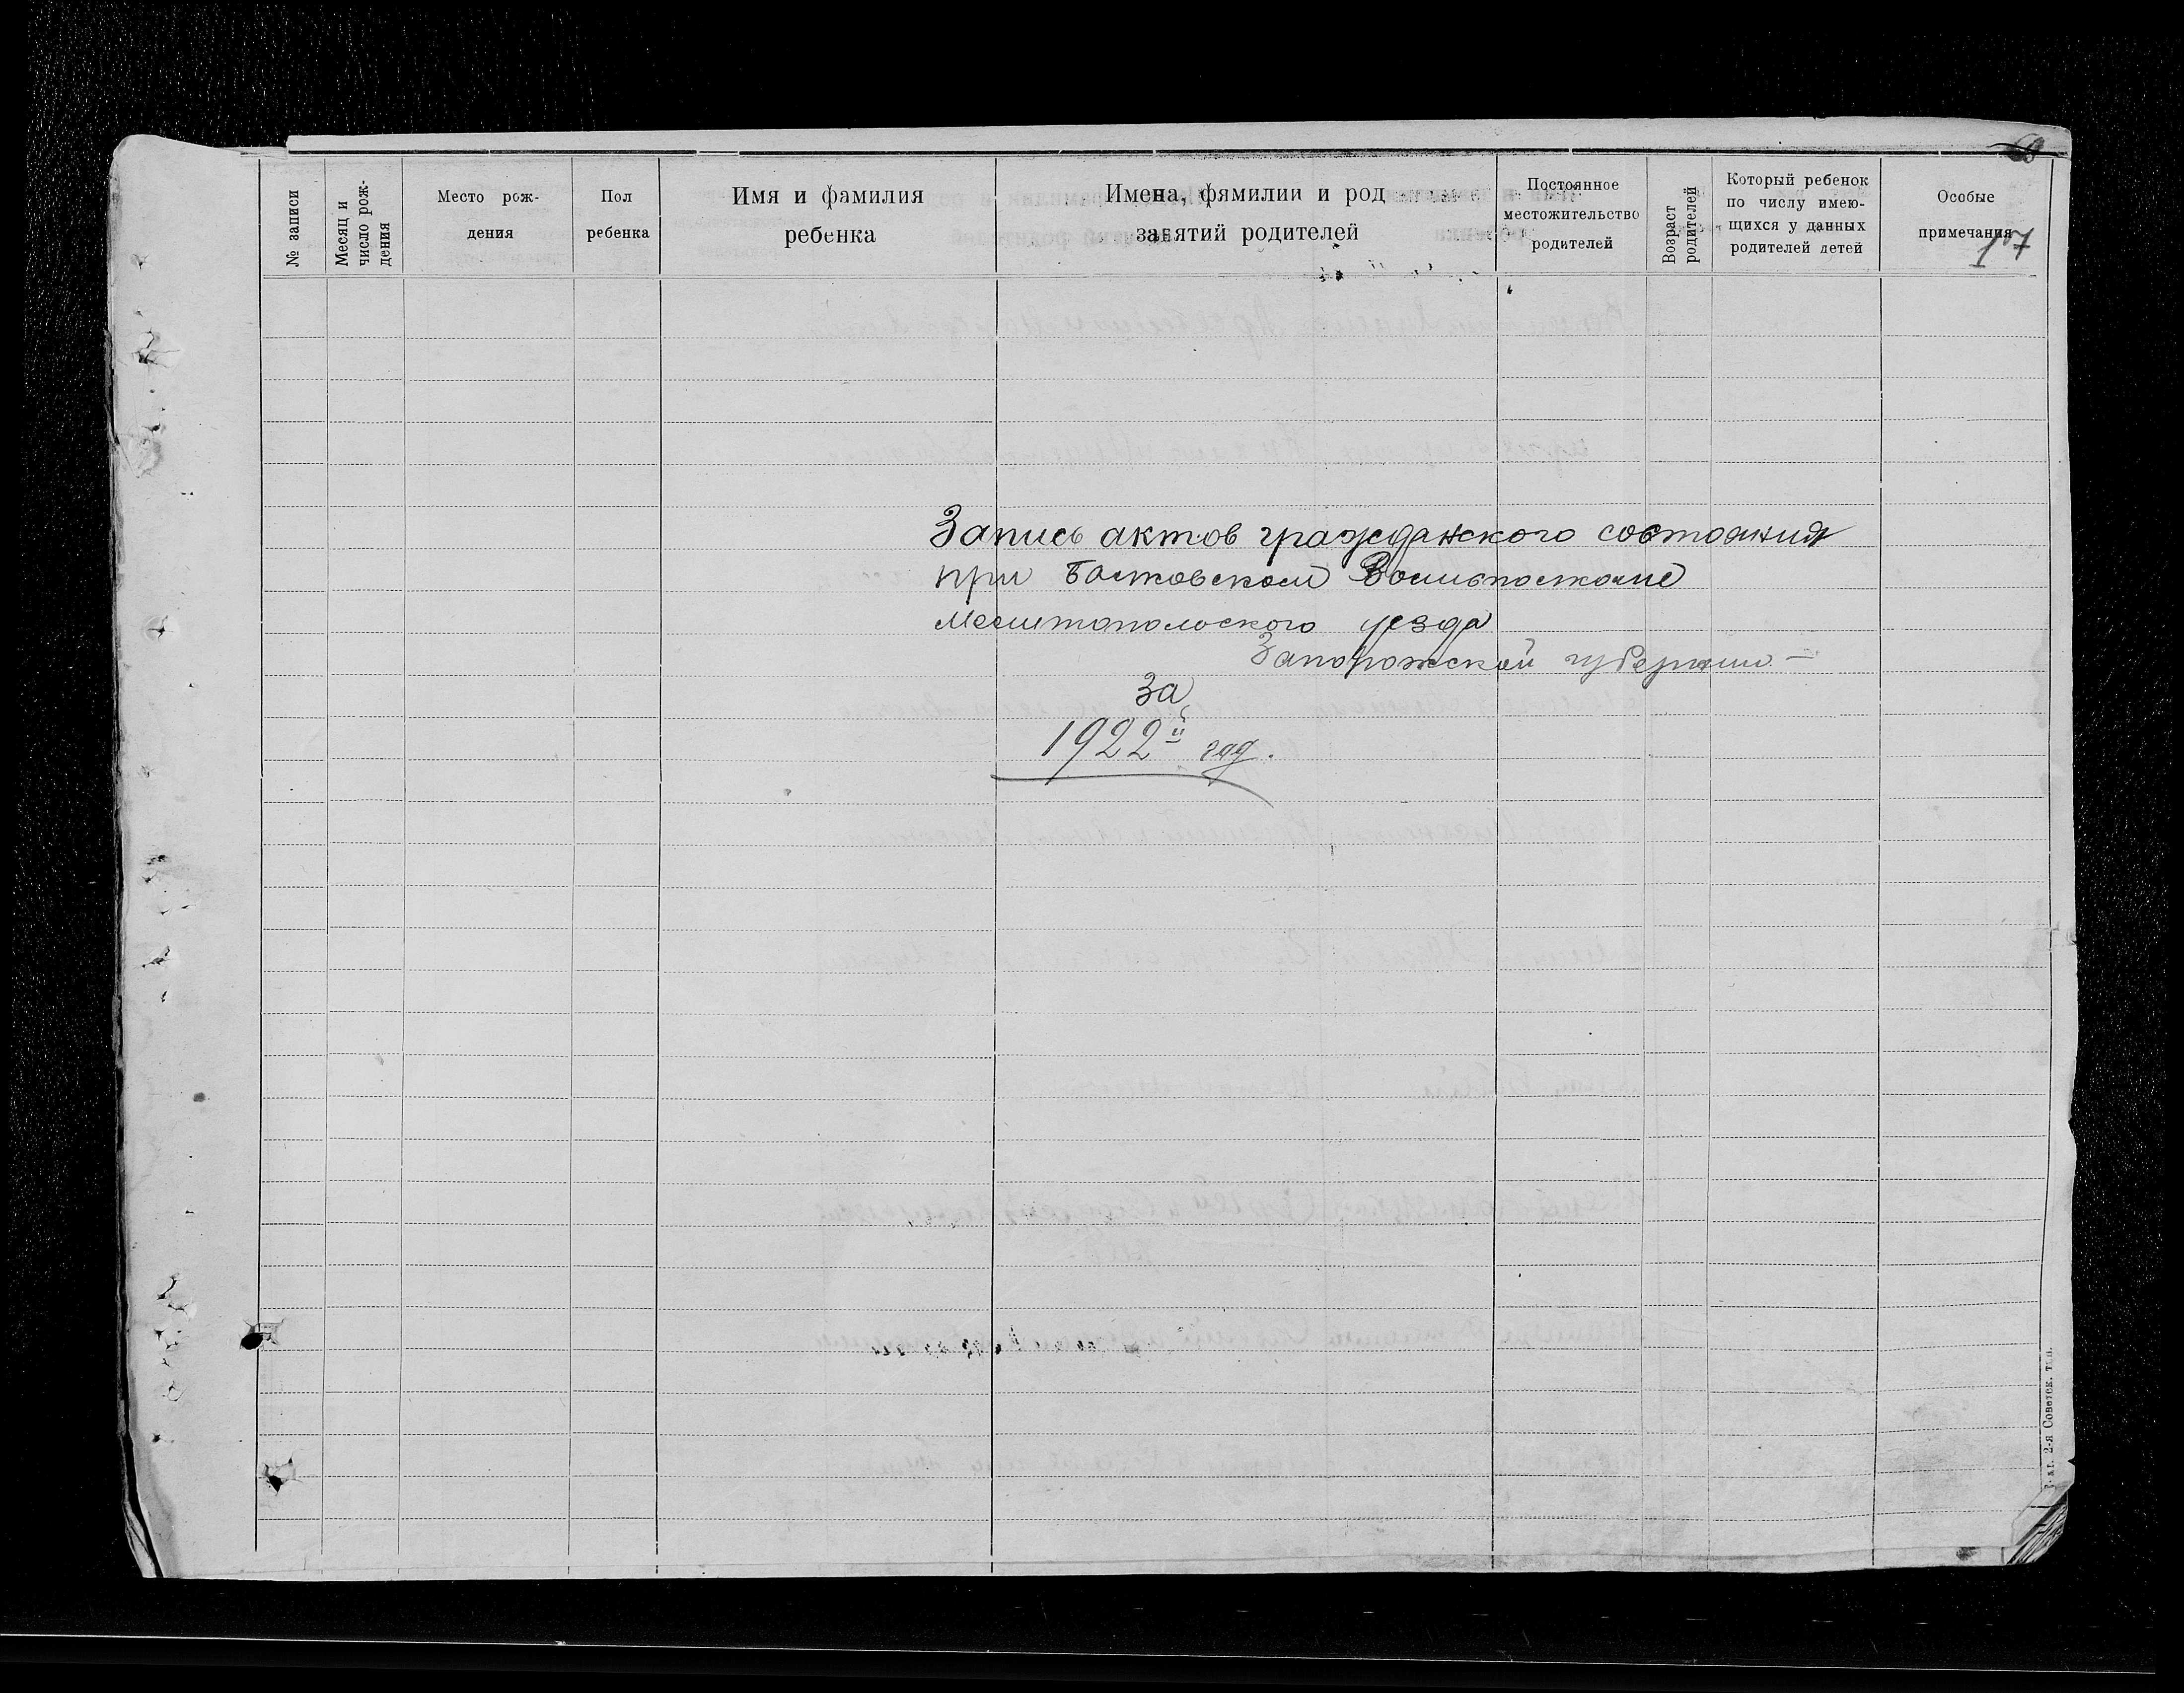 № записи
Месяц и
число рож-
дения
Место рож-
дения
Пол
ребенка
Имя и фамилия
ребенка
Имена, фямилии и род
занятий родителей
Постоянное
местожительство
родителей
Возраст
родителей
Который ребенок
по числу имею-
щихся у данных
родителей детей
Особые
примечания
107
Запись актов гражданского состояния
при
Мелитопольского уезда
Запорожской губернии —
за
1922й год.
2-я Советск. тип.